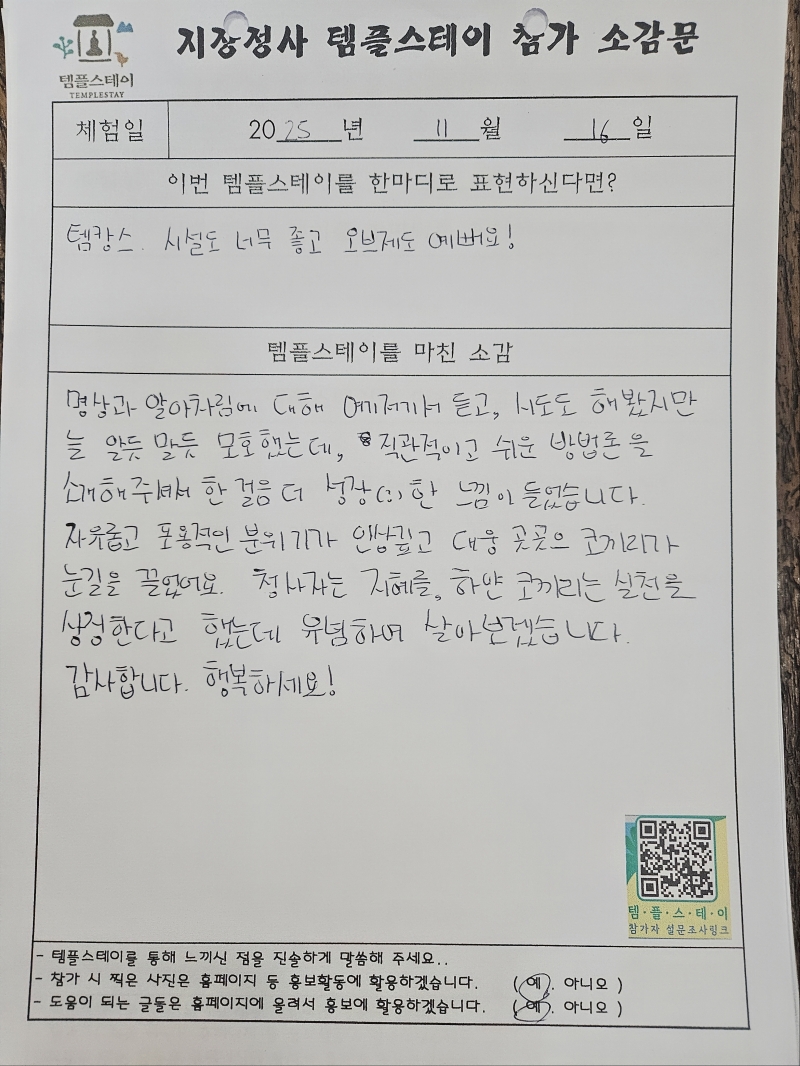 템플스테이
TEMPLESTAY
지장정사 템플스테이 참가 소감문
체험일 2025년 11월 16일
이번 템플스테이를 한마디로 표현하신다면?
템캉스. 시설도 너무 좋고 오브제도 예뻐요!
템플스테이를 마친 소감
명상과 알아차림에 대해 여기저기서 듣고, 시도도 해봤지만
늘 알듯 말듯 모호했는데, 직관적이고 쉬운 방법론을
소개해주셔서 한 걸음 더 성장(?)한 느낌이 들었습니다.
자유롭고 포용적인 분위기가 인상깊고 대웅 곳곳으 코끼리가
눈길을 끌었어요. 청사자는 지혜를, 하얀 코끼리는 실천을
상정한다고 했는데 유념하여 살아보겠습니다.
감사합니다. 행복하세요!
템·플·스·테·이
참가자 설문조사링크
- 템플스테이를 통해 느끼신 점을 진솔하게 말씀해 주세요..
- 참가 시 찍은 사진은 홈페이지 등 홍보활동에 활용하겠습니다. ( 예. 아니오 )
- 도움이 되는 글들은 홈페이지에 올려서 홍보에 활용하겠습니다. ( 예. 아니오 )